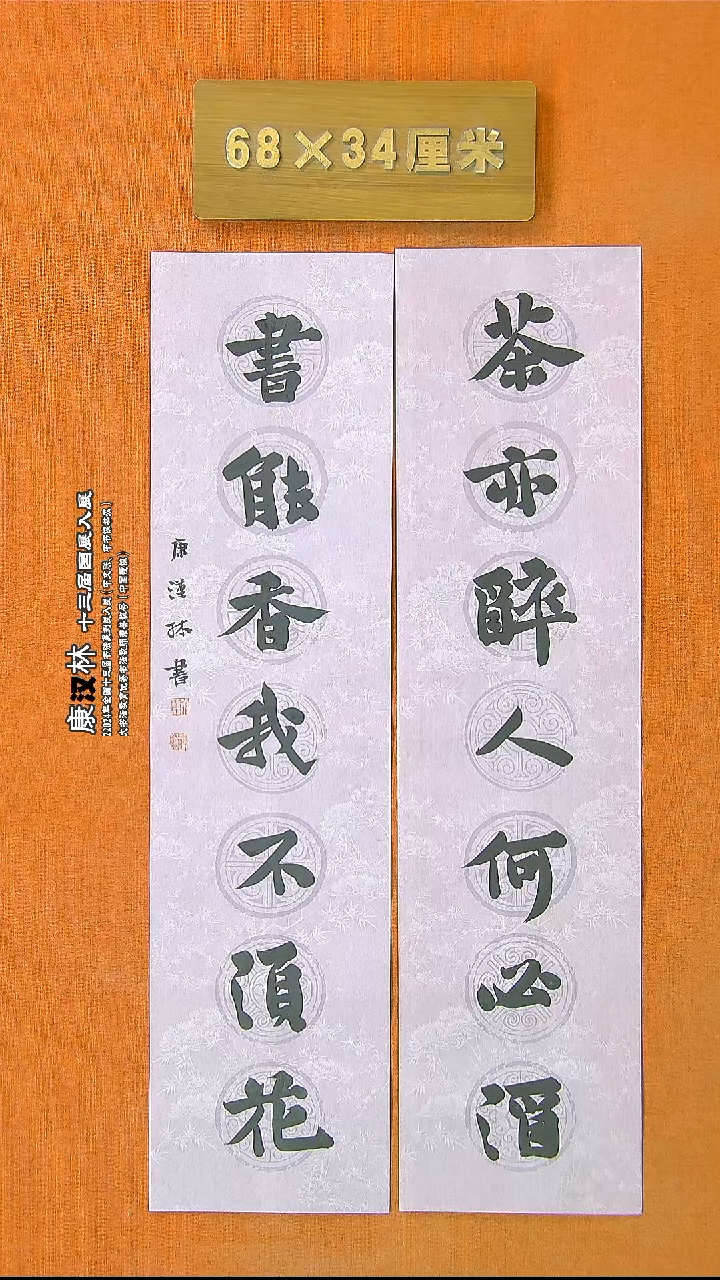 68×34厘米
茶亦醉人何必酒
書能香我不須花
康漢林書
康汉林 十三届国展入展